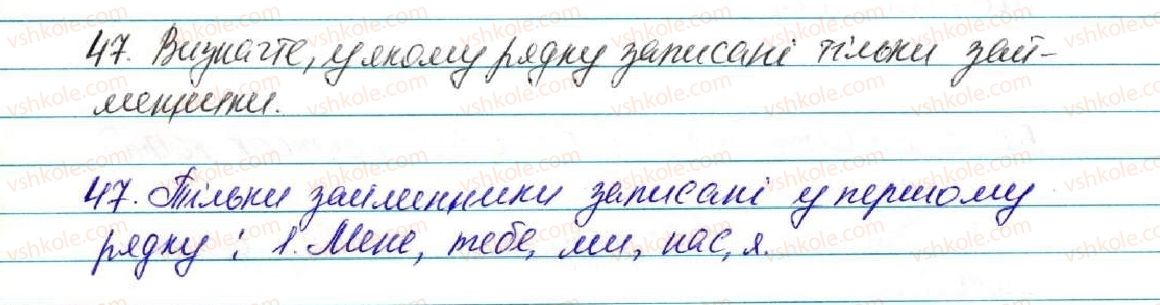 47. Визначте, у якому рядку записані тільки зай-
менники.
47. Тільки займенники записані у першому
рядку: 1. Мене, тебе, ми, нас, я.